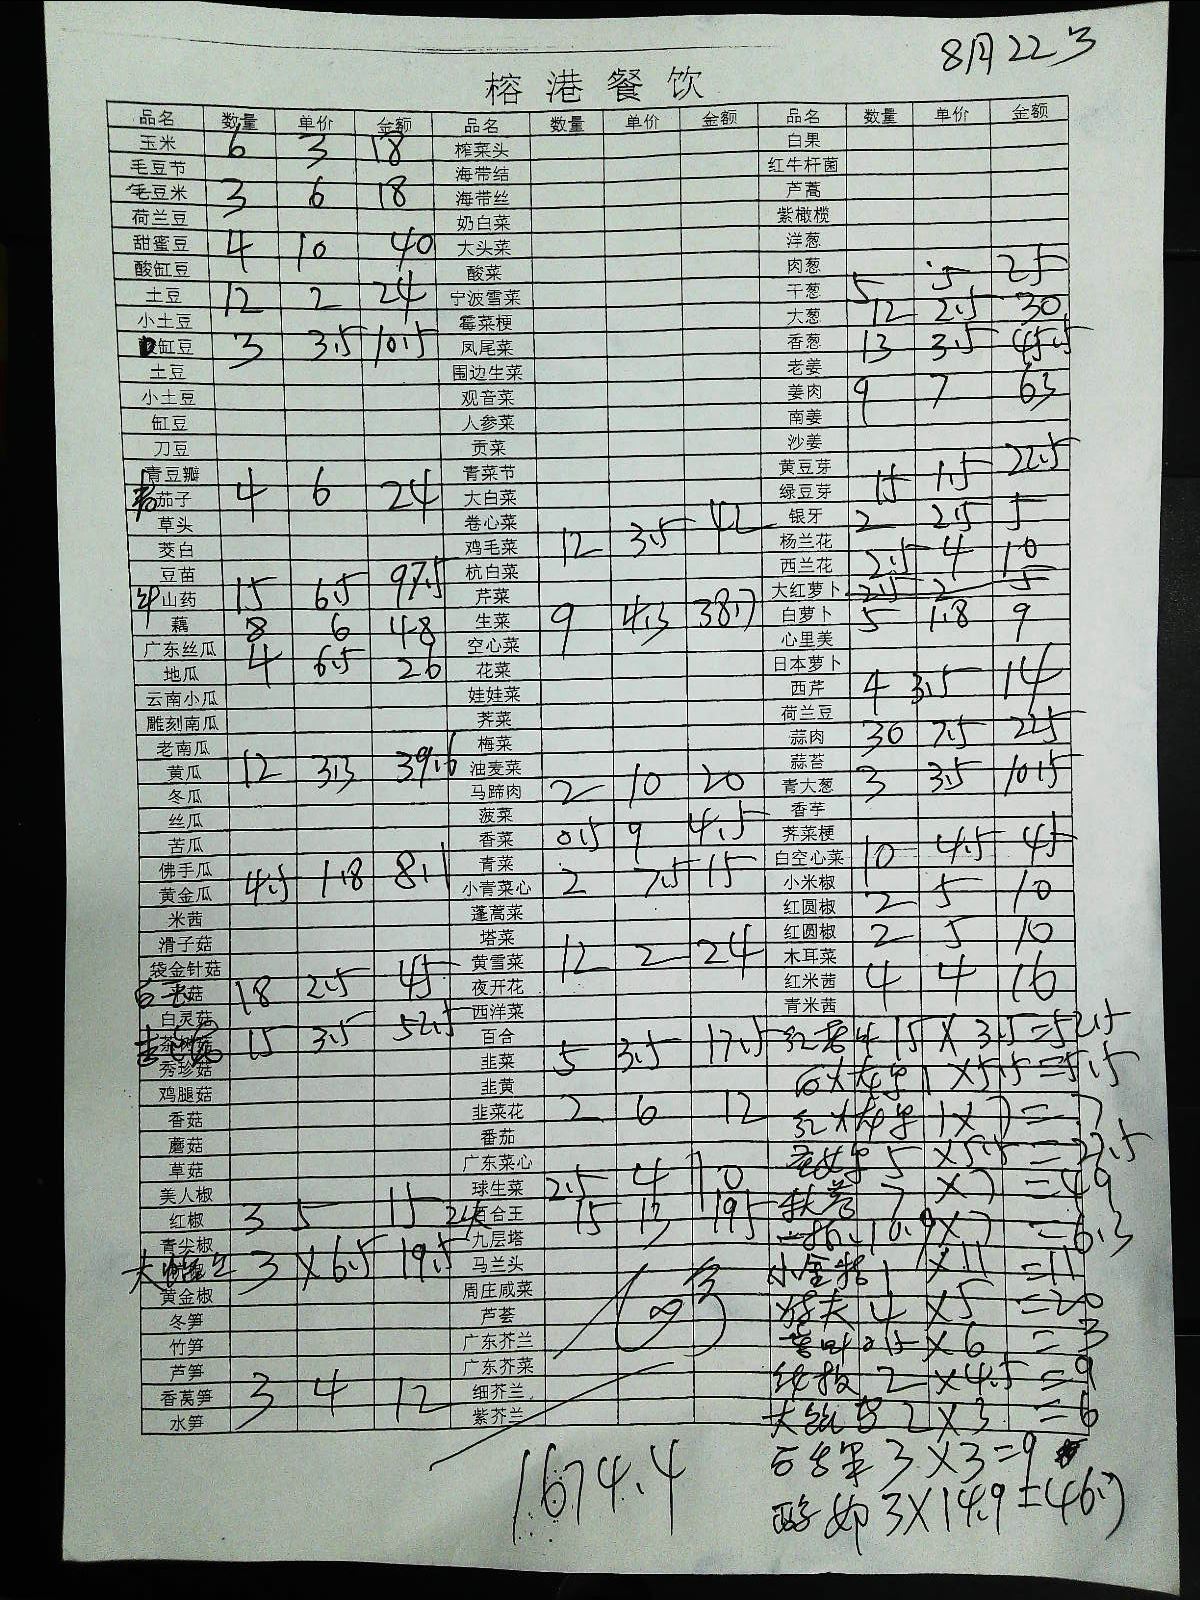 8月22号
榕港餐饮
品名 数量 单价 金额 品名 数量 单价 金额 品名 数量 单价 金额
玉米 6 3 18 榨菜头 白果
毛豆节 海带结 红牛杆菌
毛豆米 3 6 18 海带丝 芦蒿
荷兰豆 奶白菜 紫橄榄
甜蜜豆 4 10 40 大头菜 洋葱
酸缸豆 酸菜 肉葱
土豆 12 2 24 宁波雪菜 干葱 5 5 25
小土豆 霉菜梗 大葱 12 2.5 30
缸豆 3 3.5 10.5 凤尾菜 香葱 13 3.5 45.5
土豆 围边生菜 老姜
小土豆 观音菜 姜肉 9 7 63
缸豆 人参菜 南姜
刀豆 贡菜 沙姜
青豆瓣 青菜节 黄豆芽
茄子 4 6 24 大白菜 绿豆芽 15 1.5 22.5
草头 卷心菜 银牙 2 2.5 5
茭白 鸡毛菜 12 3.5 42 杨兰花
豆苗 杭白菜 西兰花 2.5 4 10
山药 15 6.5 97.5 芹菜 大红萝卜 2.5 2 5
藕 8 6 48 生菜 9 4.3 38.7 白萝卜 5 1.8 9
广东丝瓜 空心菜 心里美
地瓜 4 6.5 26 花菜 日本萝卜
云南小瓜 娃娃菜 西芹 4 3.5 14
雕刻南瓜 荠菜 荷兰豆
老南瓜 梅菜 蒜肉 30 7.5 225
黄瓜 12 3.3 39.6 油麦菜 蒜苔
冬瓜 马蹄肉 2 10 20 青大葱 3 3.5 10.5
丝瓜 菠菜 香芋
苦瓜 香菜 0.5 9 4.5 荠菜梗
佛手瓜 青菜 白空心菜 10 4.5 45
黄金瓜 4.5 1.8 8.1 小青菜心 2 7.5 15 小米椒
米茜 蓬蒿菜 红圆椒 2 5 10
滑子菇 塔菜 红圆椒 2 5 10
袋金针菇 黄雪菜 12 2 24 木耳菜
菇 18 2.5 45 夜开花 红米茜 4 4 16
白灵菇 西洋菜 青米茜
15 3.5 52.5 百合 15 X 3.5 = 52.5
秀珍菇 韭菜 5 3.5 17.5 白火龙果 1 X 5.5 = 5.5
鸡腿菇 韭黄 红火龙果 1 X 7 = 7
香菇 韭菜花 2 6 12
蘑菇 番茄 5 X 5.5 = 27.5
草菇 广东菜心 7 X 7 = 49
美人椒 球生菜 2.5 4 10
红椒 3 5 15 百合王 15 13 195 0.9 X 7 = 6.3
青尖椒 九层塔
3 X 6.5 19.5 马兰头 1 X 11 = 11
黄金椒 周庄咸菜 4 X 5 = 20
冬笋 芦荟
竹笋 广东芥兰 0.5 X 6 = 3
芦笋 广东芥菜 2 X 4.5 = 9
香莴笋 3 4 12 细芥兰
水笋 紫芥兰 2 X 3 = 6
3 X 3 = 9
1674.4
酸奶 3 X 14.9 =